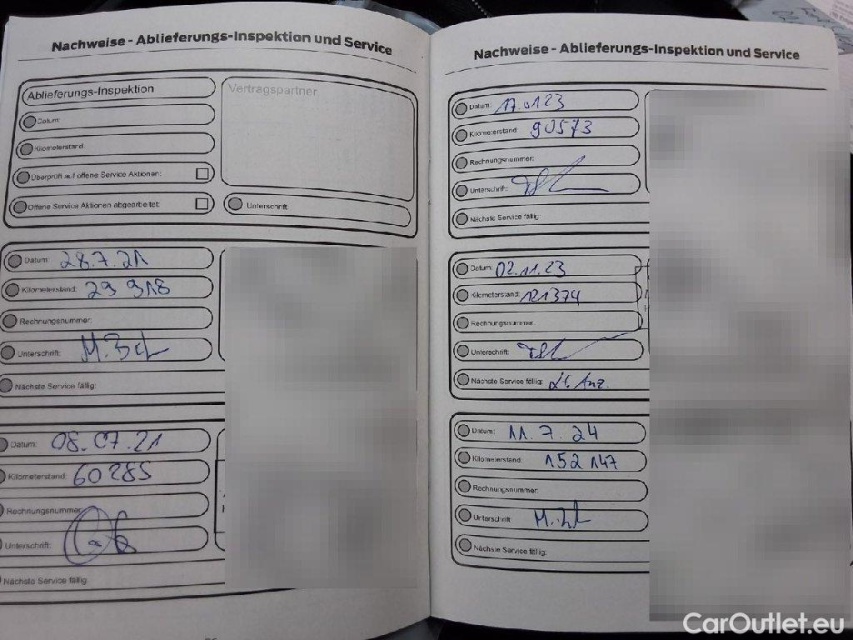 Nachweise - Ablieferungs-Inspektion und Service
Ablieferungs-Inspektion
Vertragspartner
Datum:
Kilometerstand:
Überprüft auf offene Service Aktionen:
Offene Service Aktionen abgearbeitet:
Unterschrift:
Datum: 28.7.21
Kilometerstand: 29 918
Rechnungsnummer:
Unterschrift:
Nächste Service fällig:
Datum: 08.07.21
Kilometerstand: 60285
Rechnungsnummer:
Unterschrift:
Nächste Service fällig:
Nachweise - Ablieferungs-Inspektion und Service
Datum: 17.0123
Kilometerstand: 90573
Rechnungsnummer:
Unterschrift:
Nächste Service fällig:
Datum: 02.11.23
Kilometerstand: 121374
Rechnungsnummer:
Unterschrift:
Nächste Service fällig: Lt. Anz.
Datum: 11.7.24
Kilometerstand: 152 147
Rechnungsnummer:
Unterschrift:
Nächste Service fällig:
CarOutlet.eu